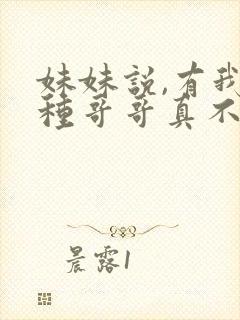 妹妹說,有我
種哥哥真不
晨露1